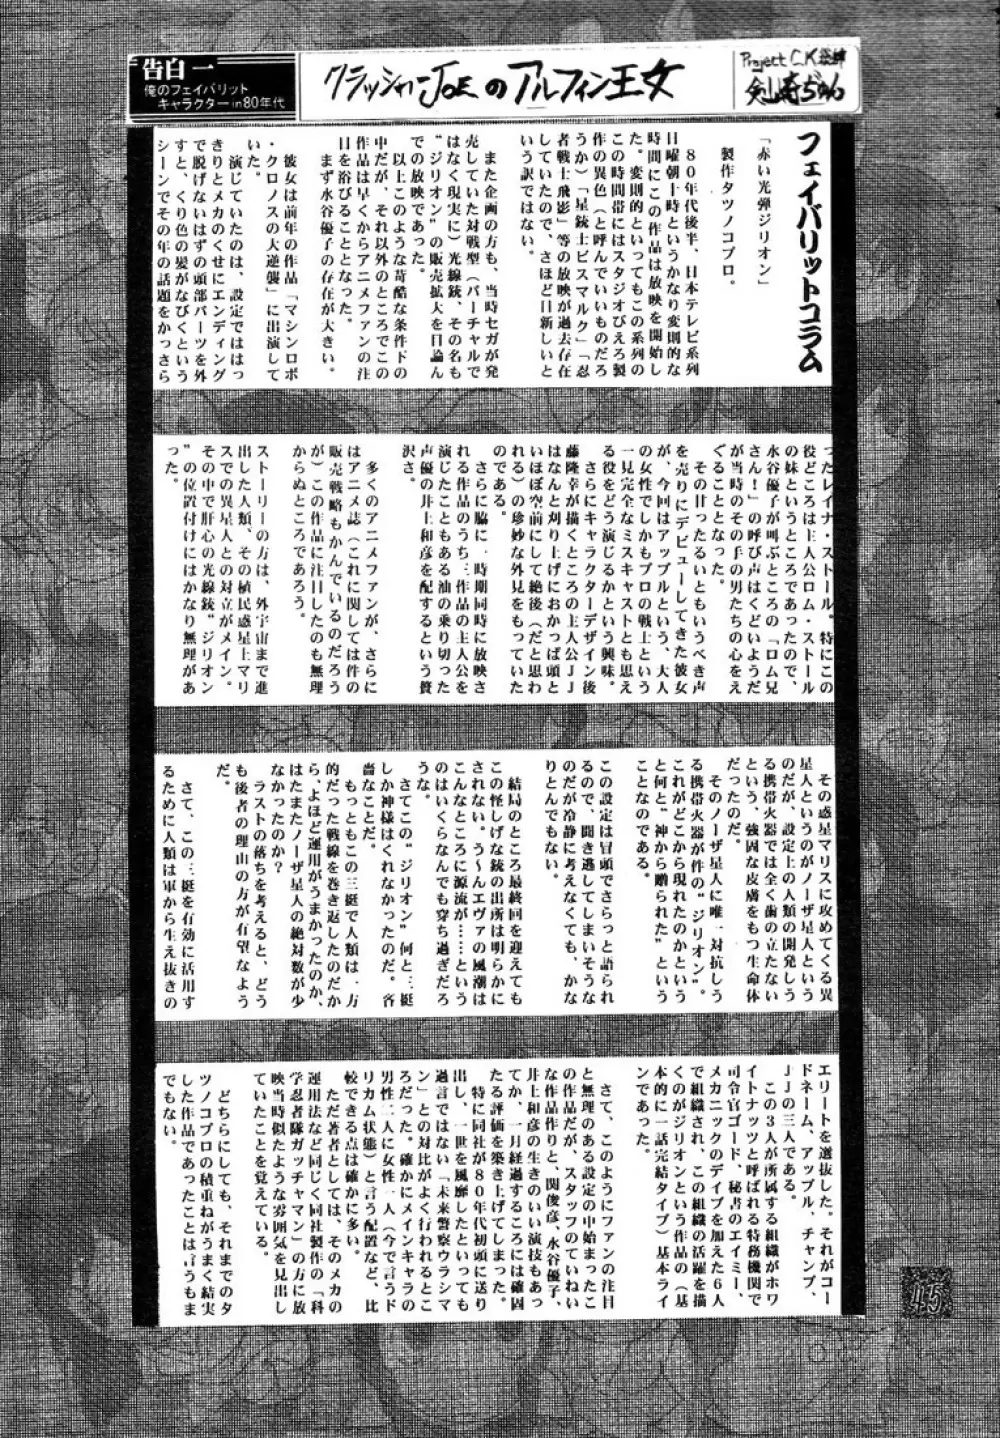 告白一
俺のフェイバリット
キャラクターin80年代
クラッシャーJOEのアルフィン王女
Project C.K.
フェイバリットコラム
「赤い光弾ジリオン」
製作タツノコプロ。
８０年代後半、日本テレビ系列
日曜朝十時というかなり変則的な
時間にこの作品は放映を開始し
た。変則的といってもこの系列の
この時間帯にはスタジオぴえろ製
作の異色（と呼んでいいものだろ
うか）「星銃士ビスマルク」「忍
者戦士飛影」等の放映が過去存在
していたので、さほど目新しいと
いう訳ではない。
また企画の方も、当時セガが発
売していた対戦型（バーチャルで
はなく現実に）光線銃、その名も
“ジリオン”の販売拡大を目論ん
での放映であった。
以上このような苛酷な条件下の
中だが、それ以外のところでこの
作品は早くからアニメファンの注
目を浴びることとなった。
まず水谷優子の存在が大きい。
彼女は前年の作品「マシンロボ
・クロノスの大逆襲」に出演して
いた。
演じていたのは、設定でははっ
きりとメカのくせにエンディング
で脱げないはずの頭部パーツを外
すと、くり色の髪がなびくという
シーンでその年の話題をかっさら
ったレイナ・ストール。特にこの
役どころは主人公ロム・ストール
の妹というところであったので、
水谷優子が叫ぶところの「ロム兄
さん！」の呼び声はくどいようだ
が当時のその手の男たちの心をえ
ぐることとなった。
その甘ったるいともいうべき声
を売りにデビューしてきた彼女
が、今回はアップルという、大人
の女性でしかもプロの戦士という
一見完全なミスキャストとも思え
る役をどう演じるかという興味。
さらにキャラクターデザイン後
藤隆幸が描くところの主人公ＪＪ
はなんと刈り上げにおかっぱ頭と
いいほぼ空前にして絶後（だと思わ
れる）の珍妙な外見をもっていた
のである。
さらに脇に一時期同時に放映さ
れる作品のうち三作品の主人公を
演じたこともある油の乗り切った
声優の井上和彦を配するという贅
沢さ。
多くのアニメファンが、さらに
はアニメ誌（これに関しては件の
販売戦略もかんでいるのだろう
が）この作品に注目したのも無理
からぬところであろう。
ストーリーの方は、外宇宙まで進
出した人類、その植民惑星上マリ
スでの異星人との対立がメイン。
その中で肝心の光線銃“ジリオン
”の位置付けにはかなり無理があ
った。
その惑星マリスに攻めてくる異
星人というのがノーザ星人という
のだが、設定上の人類の開発しう
る携帯火器では全く歯の立たない
という、強固な皮膚をもつ生命体
だったのだ。
そのノーザ星人に唯一対抗しう
る携帯火器が件の“ジリオン”。
これがどこから現れたのかという
と何と“神から贈られた”という
ことなのである。
この設定は冒頭でさらっと語られ
るので、聞き逃してしまいそうな
のだが冷静に考えなくても、かな
りとんでもない。
結局のところ最終回を迎えても
この怪しげな銃の出所は明らかに
されない。う～んエヴァの風潮は
こんなところに源流が……という
のはいくらなんでも穿ち過ぎだろ
うな。
さてこの“ジリオン”何と三挺
しか神様はくれなかったのだ。吝
嗇なことだ。
もっともこの三挺で人類は一方
的だった戦線を巻き返したのだか
ら、よほど運用がうまかったのか、
はたまたノーザ星人の絶対数が少
なかったのか？
ラストの落ちを考えると、どう
も後者の理由の方が有望なよう
だ。
さて、この三挺を有効に活用す
るために人類は軍から生え抜きの
エリートを選抜した。それがコー
ドネーム、アップル、チャンプ、
ＪＪの三人である。
この3人が所属する組織がホワ
イトナッツと呼ばれる特務機関で
司令官ゴード、秘書のエイミー、
メカニックのデイブを加えた6人
で組織され、この組織の活躍を描
くのがジリオンという作品の（基
本的に一話完結タイプ）基本ライ
ンであった。
さて、このようにファンの注目
と無理のある設定の中始まったこ
の作品だが、スタッフのていねい
な作品作りと、関俊彦、水谷優子、
井上和彦の生きのいい演技もあっ
てか、一月経過するころには確固
たる評価を築き上げてしまった。
特に同社が８０年代初頭に送り
出し、一世を風靡したといっても
過言ではない「未来警察ウラシマ
ン」との対比がよく行われるとこ
ろだった。確かにメインキャラの
男性二人に女性一人（今で言うド
リカム状態）と言う配置など、比
較できる点は確かに多い。
ただ著者としては、そのメカの
運用法など同じく同社製作の「科
学忍者隊ガッチャマン」の方に放
映当時似たような雰囲気を見出し
ていたことを覚えている。
どちらにしても、それまでのタ
ツノコプロの積重ねがうまく結実
した作品であったことは言うもま
でもない。
45